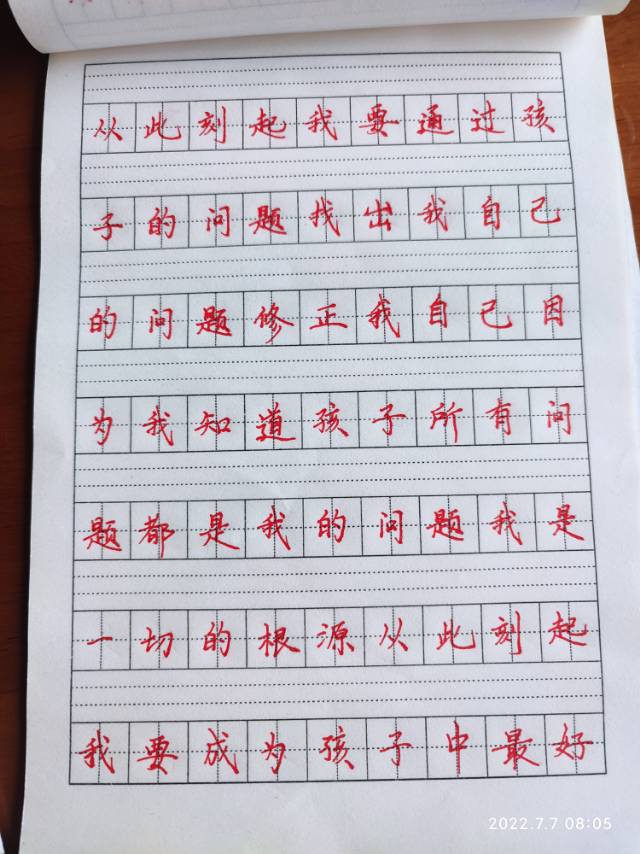 从此刻起我要通过孩
子的问题找出我自己
的问题修正我自己因
为我知道孩子所有问
题都是我的问题我是
一切的根源从此刻起
我要成为孩子中最好
2022.7.7 08:05